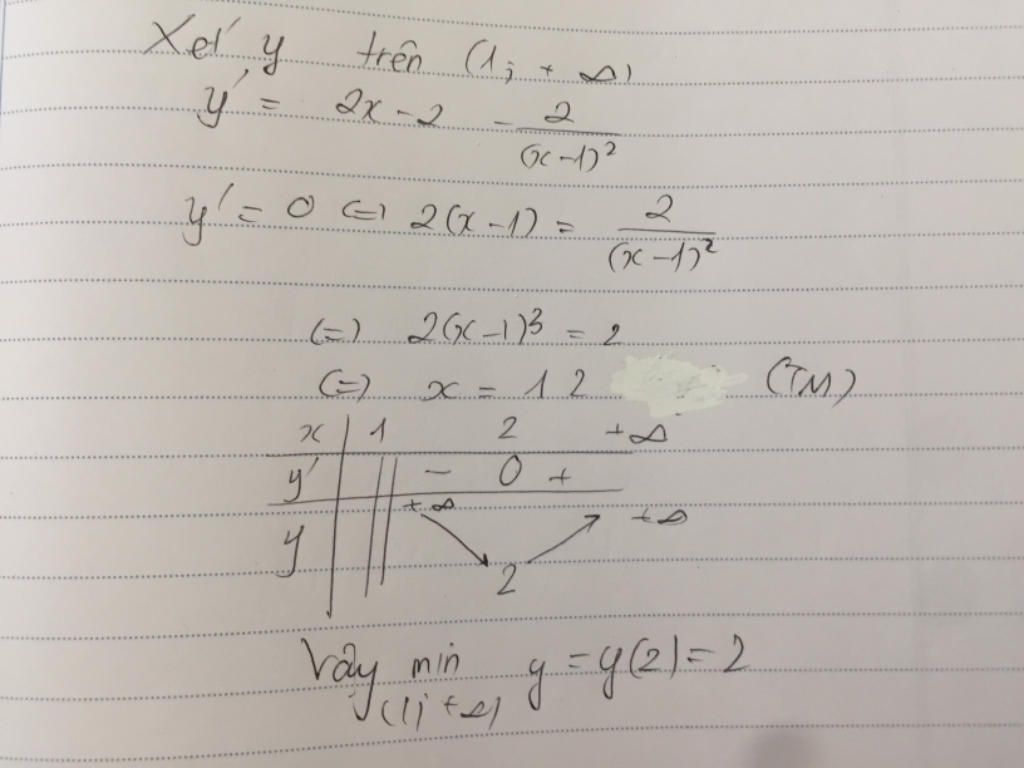 Xét y trên (1; +∞)
y' = 2x - 2 - 2/(x-1)²
y' = 0 (=) 2(x-1) = 2/(x-1)²
(=) 2(x-1)³ = 2
(=) x = 1 2 (TM)
x 1 2 +∞
y' - 0 +
+∞ +∞
y
2
Vậy min y = y(2) = 2
(1; +∞)